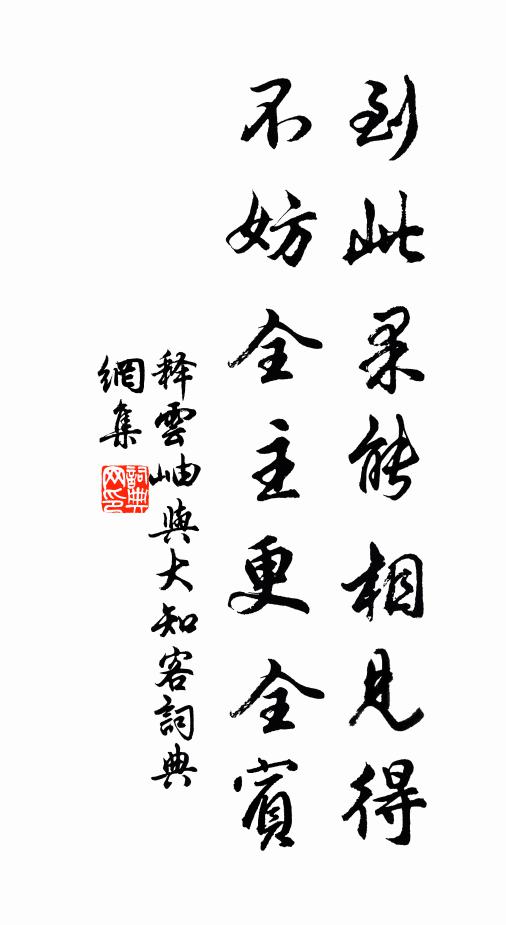 到此果能相見得
不妨全主更全賓
释雲岫與大知客詞典
網集
詞典
网印